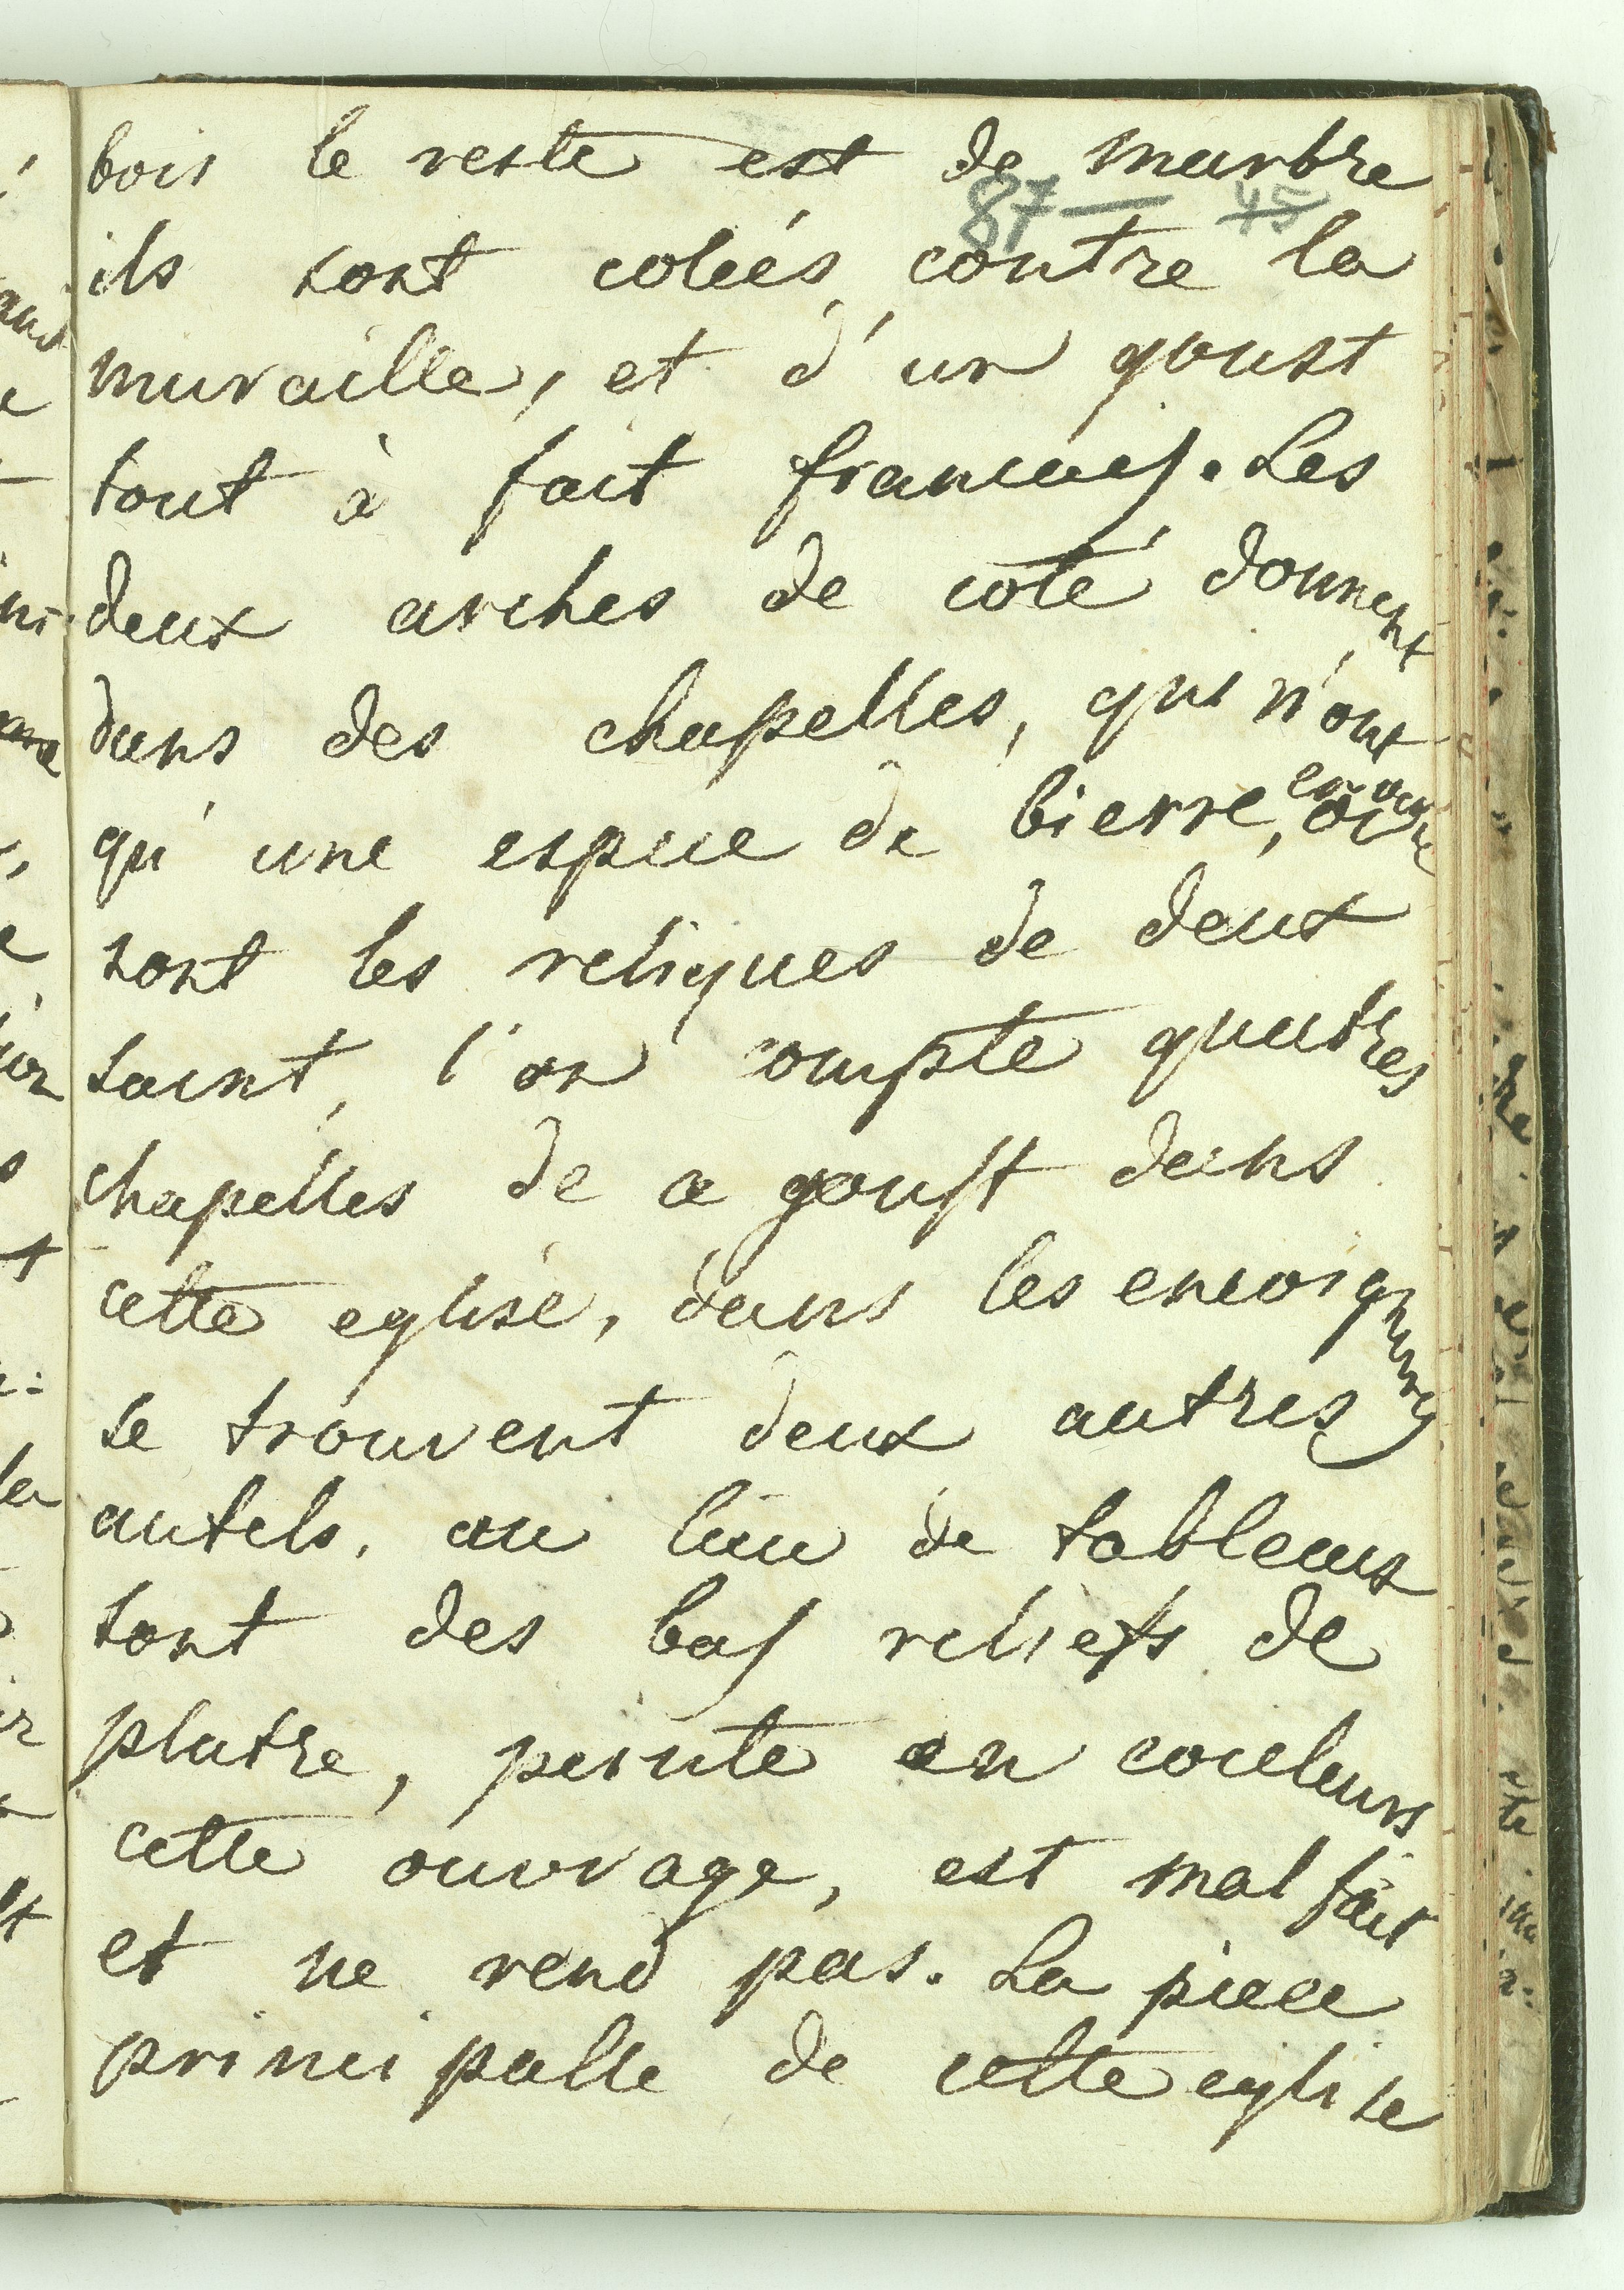 bois le reste est de marbre
87 — 45
ils sont colées contre la
muraille, et d'un goust
tout à fait francois. Les
deux arches de coté donnent
dans des chapelles, qui n'ont
qu'une espece de bierre, où
sont les reliques de deux
saint, l'on compte quatres
chapelles de ce goust dans
cette eglise, dans les encoignures
se trouvent deux autres
autels. au lieu de tableaux
sont des bas reliefs de
platre, peinte en couleurs
cette ouvrage, est mal fait
et ne rend pas. La piece
principalle de cette eglise